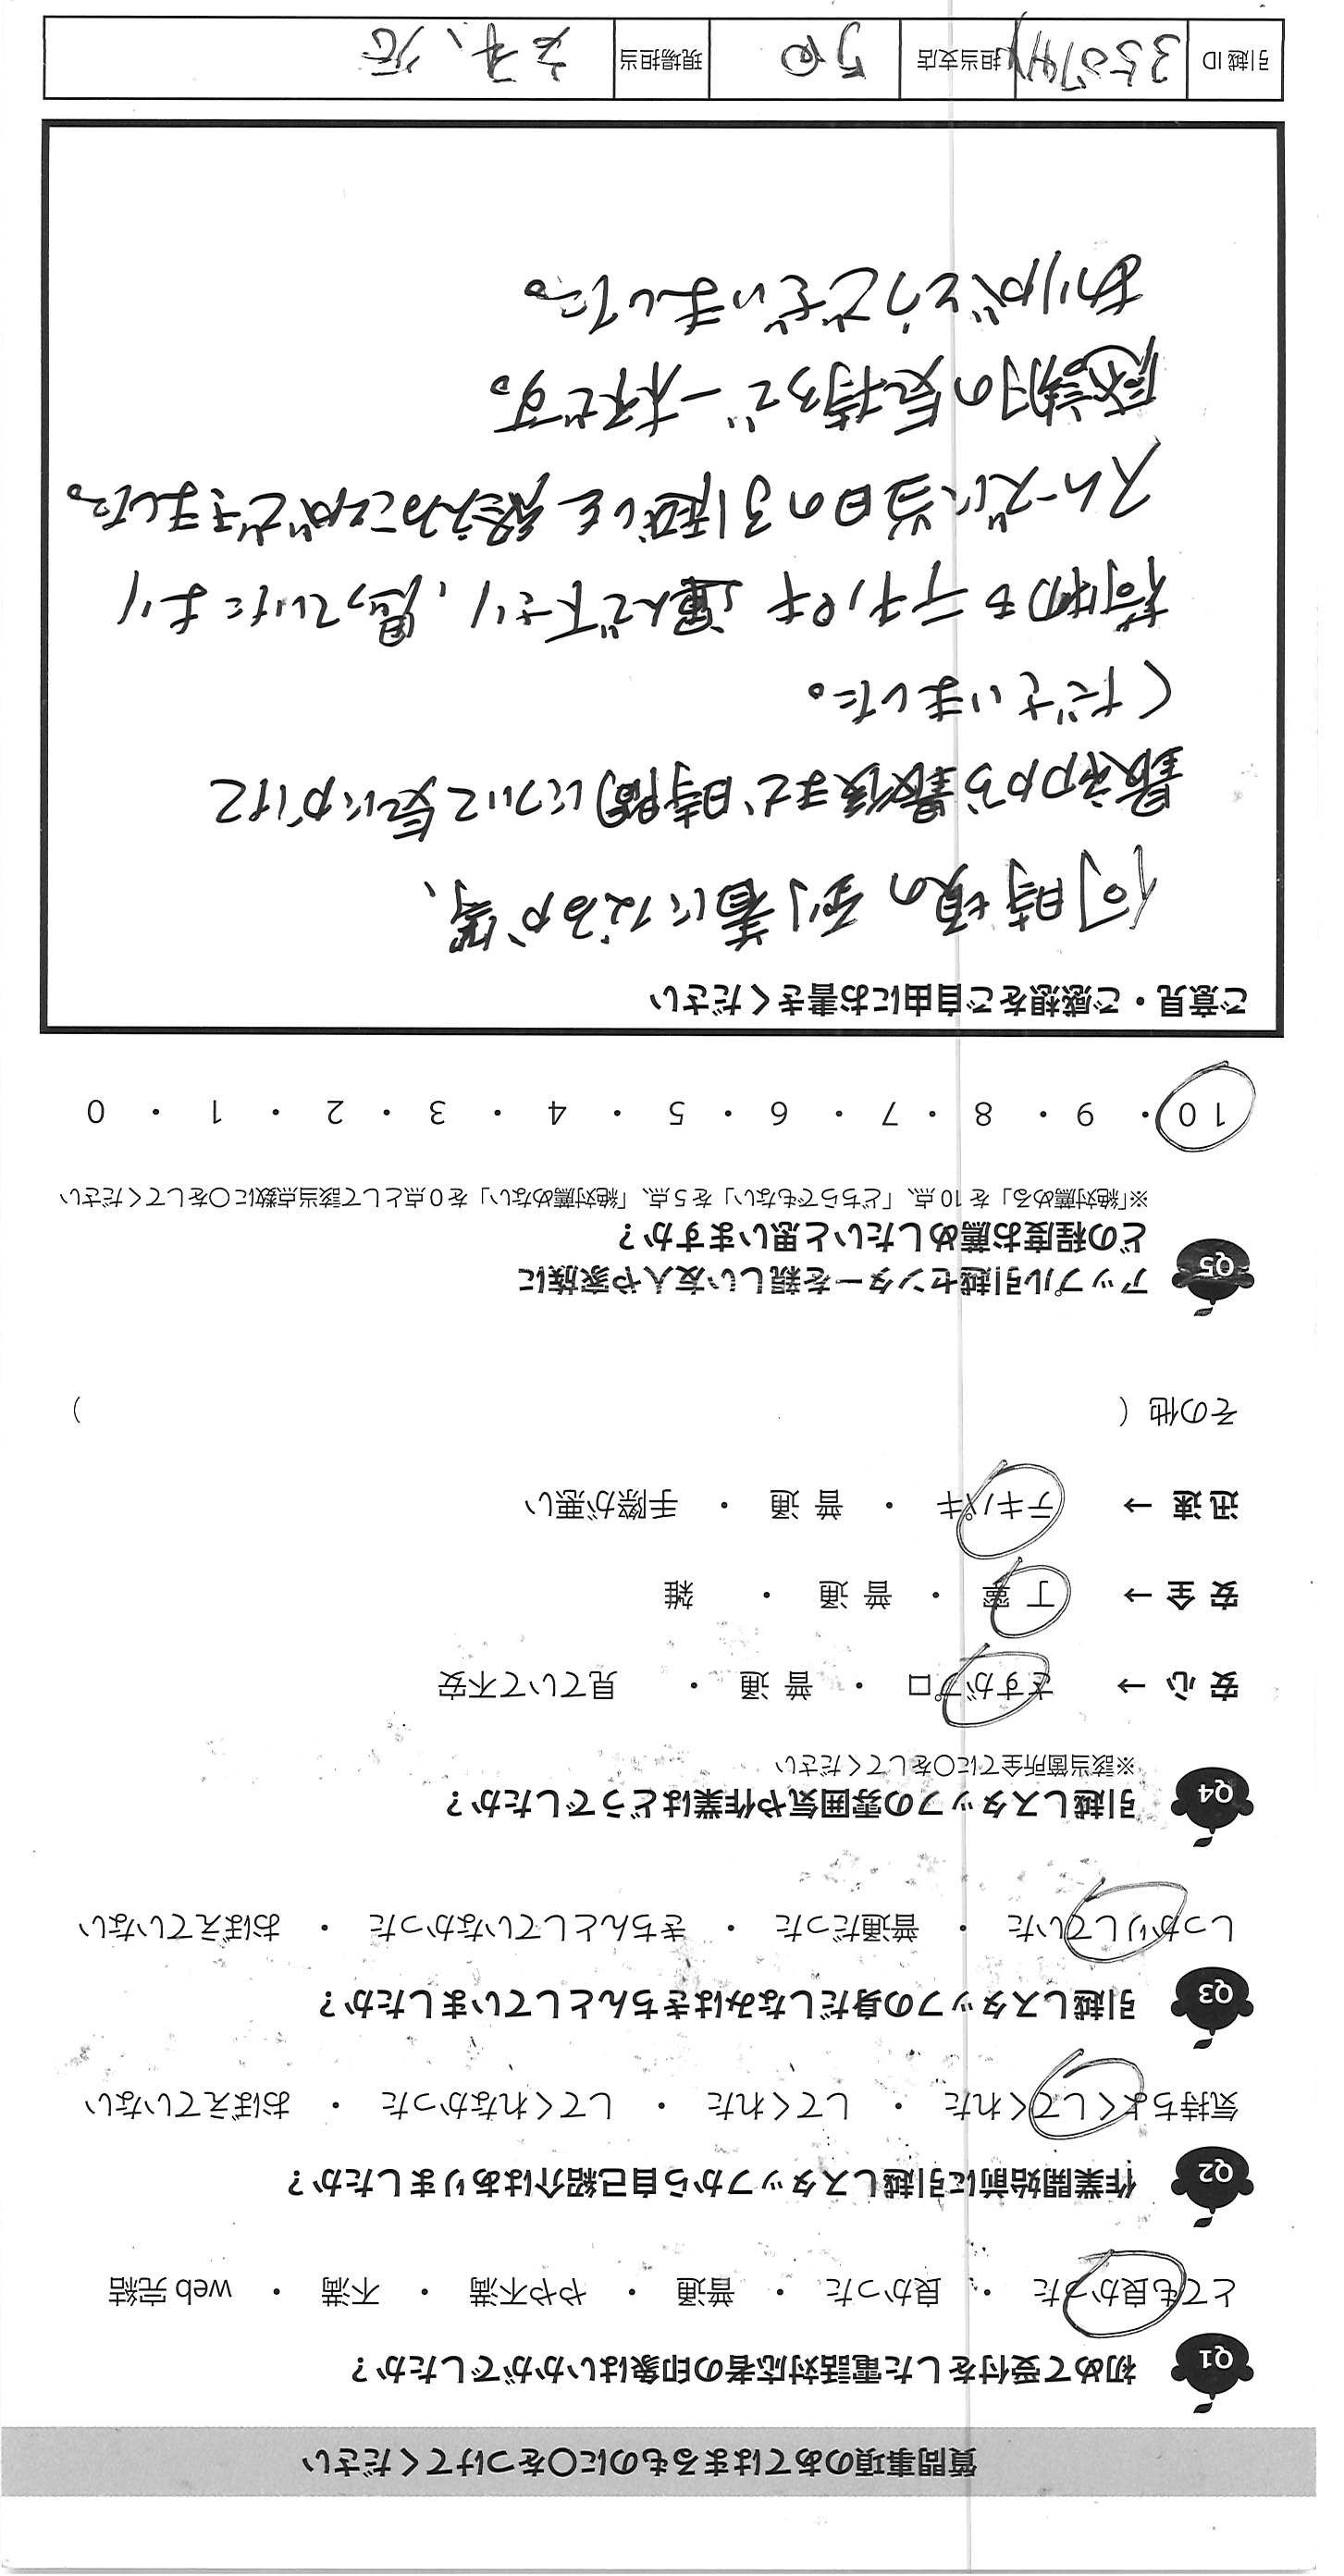 質問事項のあてはまるものに〇をつけてください
Q1 初めて受付をした電話対応者の印象はいかがでしたか？
とても良かった ・ 良かった ・ 普通 ・ やや不満 ・ 不満 ・ web 完結
Q2 作業開始前に引越しスタッフから自己紹介はありましたか？
気持ちよくしてくれた ・ してくれた ・ してくれなかった ・ おぼえていない
Q3 引越しスタッフの身だしなみはきちんとしていましたか？
しっかりしていた ・ 普通だった ・ きちんとしていなかった ・ おぼえていない
Q4 引越しスタッフの雰囲気や作業はどうでしたか？
※該当箇所全てに〇をしてください
安心 → さすがプロ ・ 普通 ・ 見ていて不安
安全 → 丁寧 ・ 普通 ・ 雑
迅速 → テキパキ ・ 普通 ・ 手際が悪い
その他（ ）
Q5 アップル引越センターを親しい友人や家族に
どの程度お薦めしたいと思いますか？
※「絶対薦める」を10点、「どちらでもない」を5点、「絶対薦めない」を0点として該当点数に〇をしてください
10 ・ 9 ・ 8 ・ 7 ・ 6 ・ 5 ・ 4 ・ 3 ・ 2 ・ 1 ・ 0
ご意見・ご感想をご自由にお書きください
何時頃の到着になるか等、
最初から最後まで時間について気にかけて
くださいました。
荷物もテキパキ運んで下さり、思っていたより
スムーズに当日の引越しを終えることができました。
感謝の気持ちで一杯です。
ありがとうございました。
引越ID 担当支店 現場担当